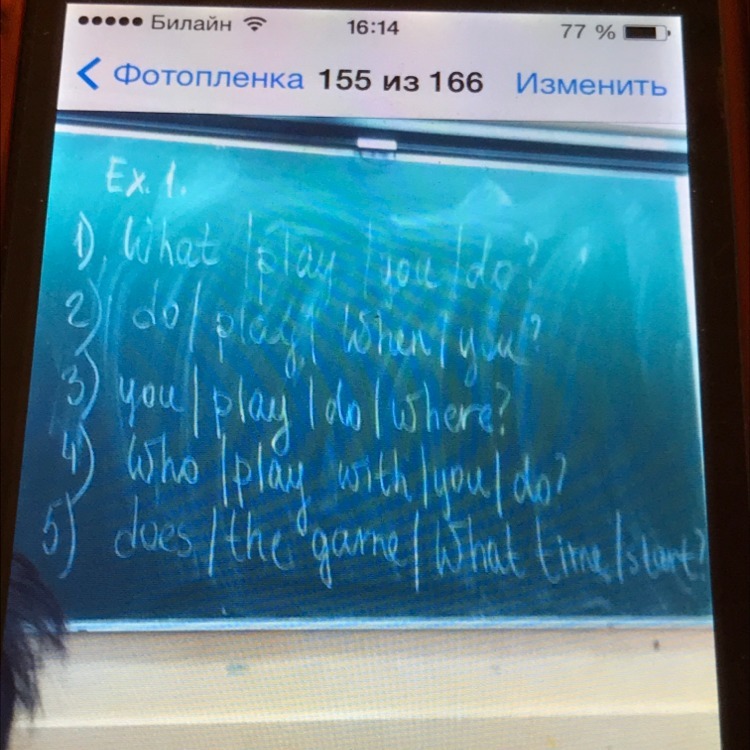 ●●●●● Билайн 16:14 77 %
Фотопленка 155 из 166 Изменить
Ex. 1.
1) What / play / you / do?
2) do / play / when / you?
3) you / play / do / where?
4) Who / play with / you / do?
5) does / the game / What time / start?